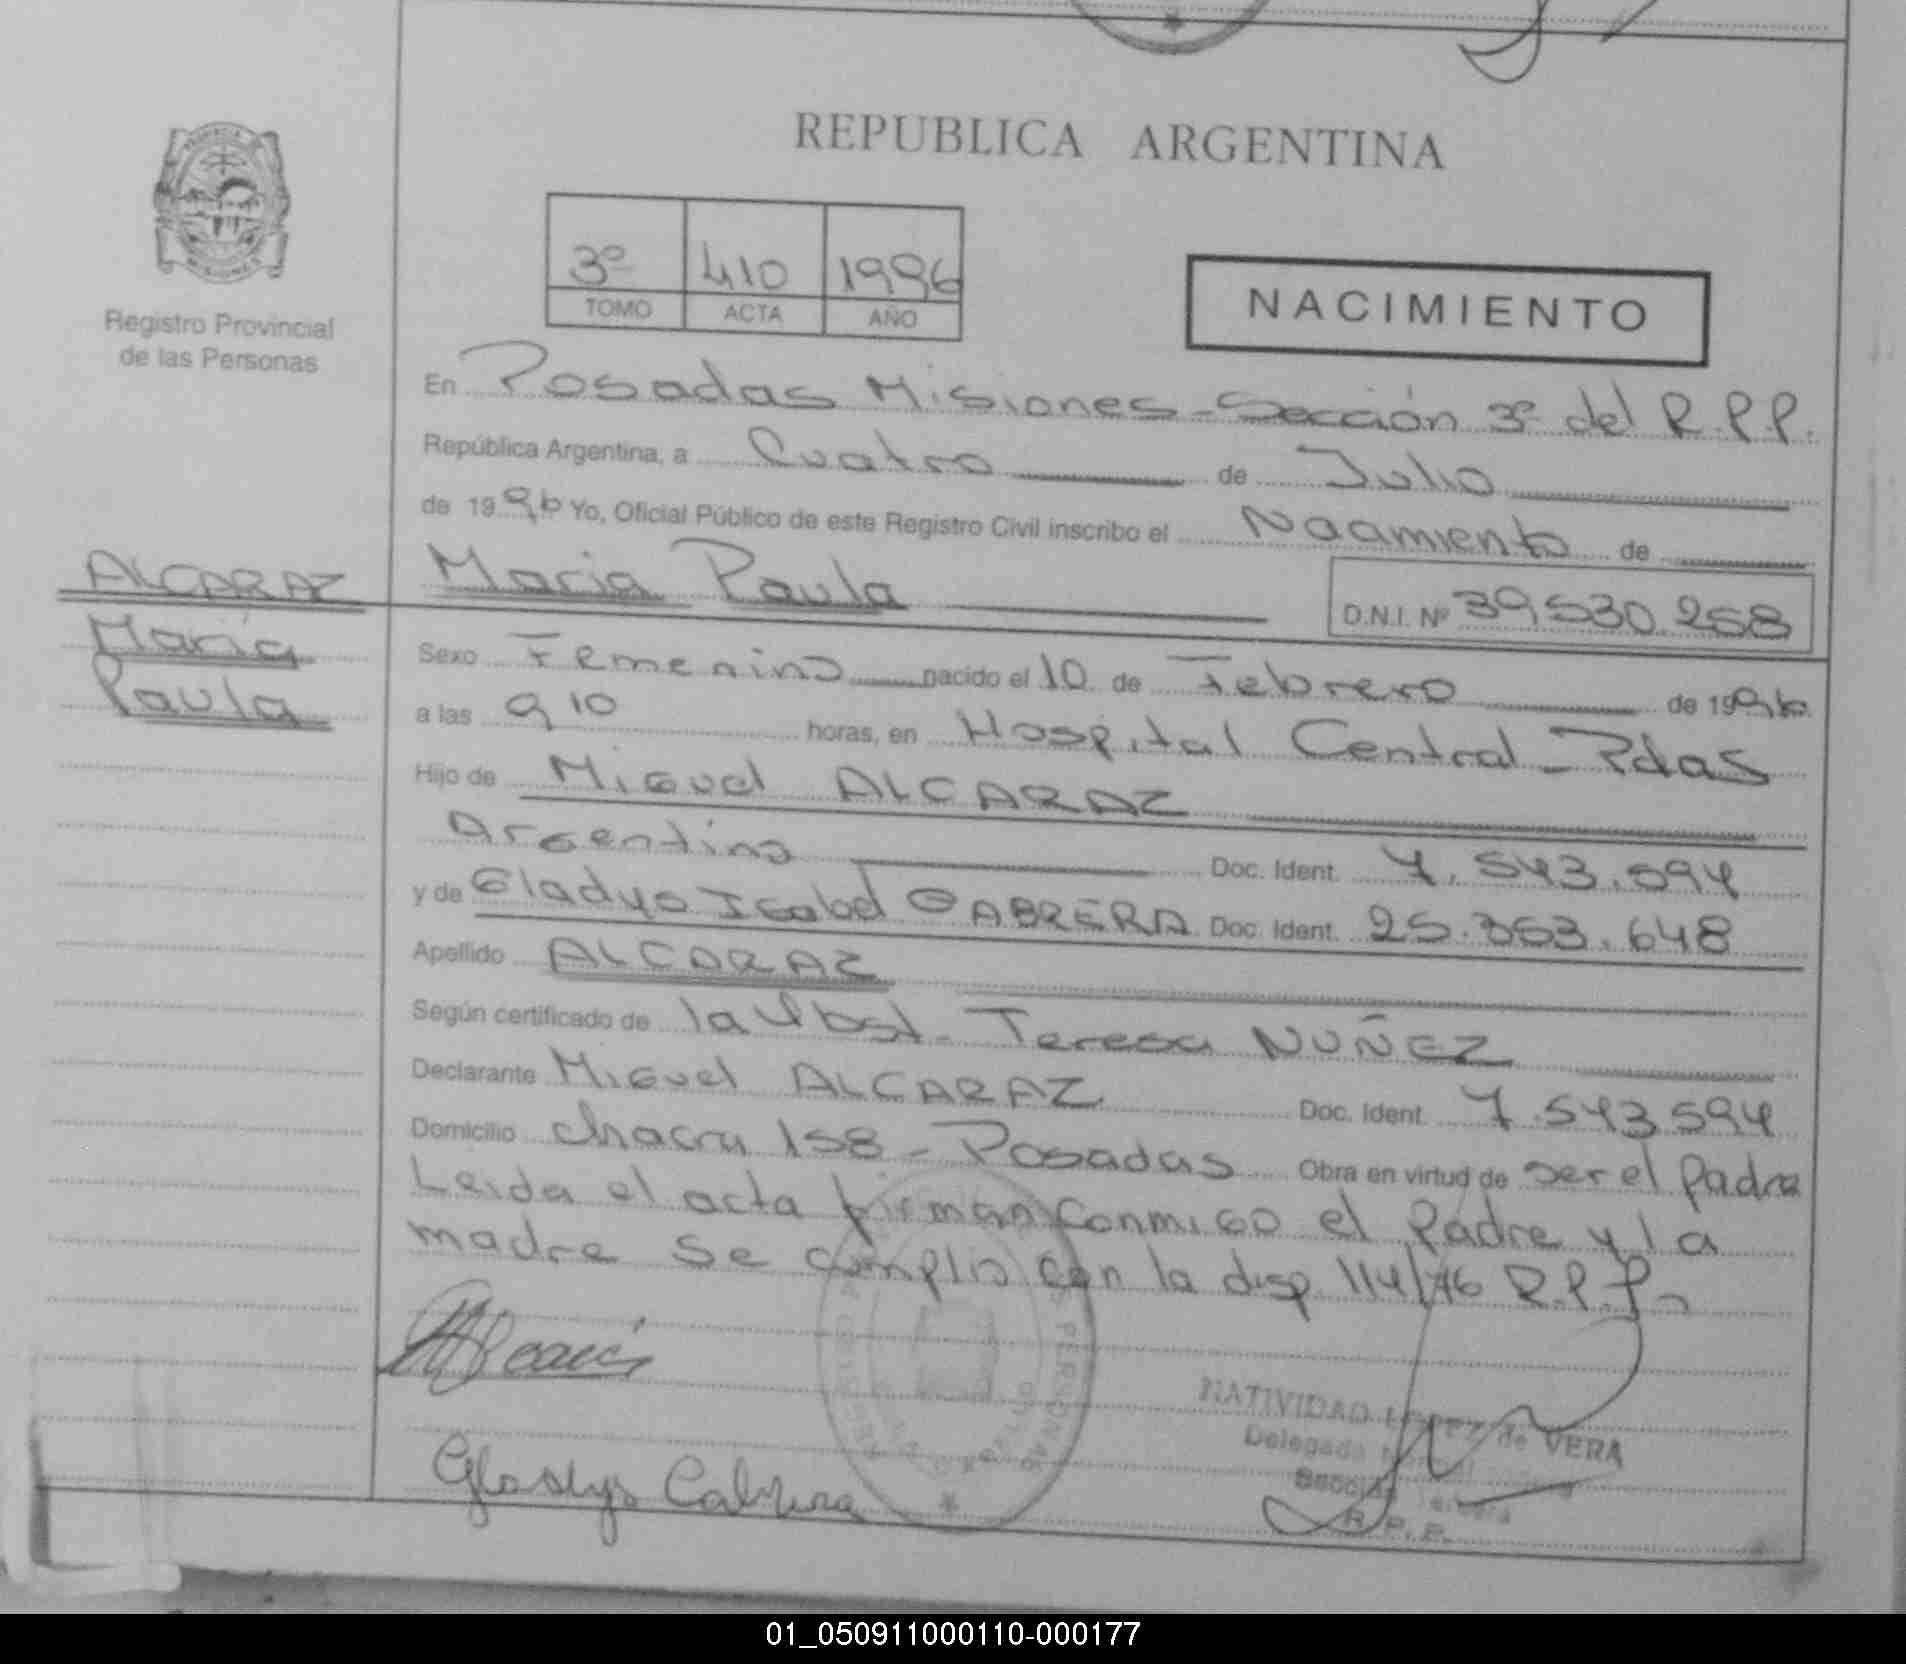 REPUBLICA ARGENTINA
3º 410 1996
TOMO ACTA AÑO
NACIMIENTO
Registro Provincial
de las Personas
En Posadas Misiones - Sección 3º del R.P.P.
República Argentina, a Cuatro de Julio
de 1996 Yo, Oficial Público de este Registro Civil inscribo el Nacimiento de
ALCARAZ
Maria
Paula
Maria Paula D.N.I. Nº 39,530.258
Sexo Femenino nacido el 10 de Febrero de 1996
a las 9 10 horas, en Hospital Central - Pdas
Hijo de Miguel ALCARAZ
Argentino Doc. Ident. 7.543.594
y de Gladys Isabel CABRERA Doc. Ident. 25.353.648
Apellido ALCARAZ
Según certificado de la Obst. Teresa NUÑEZ
Declarante Miguel ALCARAZ Doc. Ident. 7.543594
Domicilio Chacra 158 - Posadas Obra en virtud de ser el padre
Leida el acta firman conmigo el padre y la
madre se cumplio con la disp 114/76 R.P.P.
Gladys Cabrera
NATIVIDAD LOPEZ de VERA
Delegada
Sección Tercera
R.P.P.
01_050911000110-000177